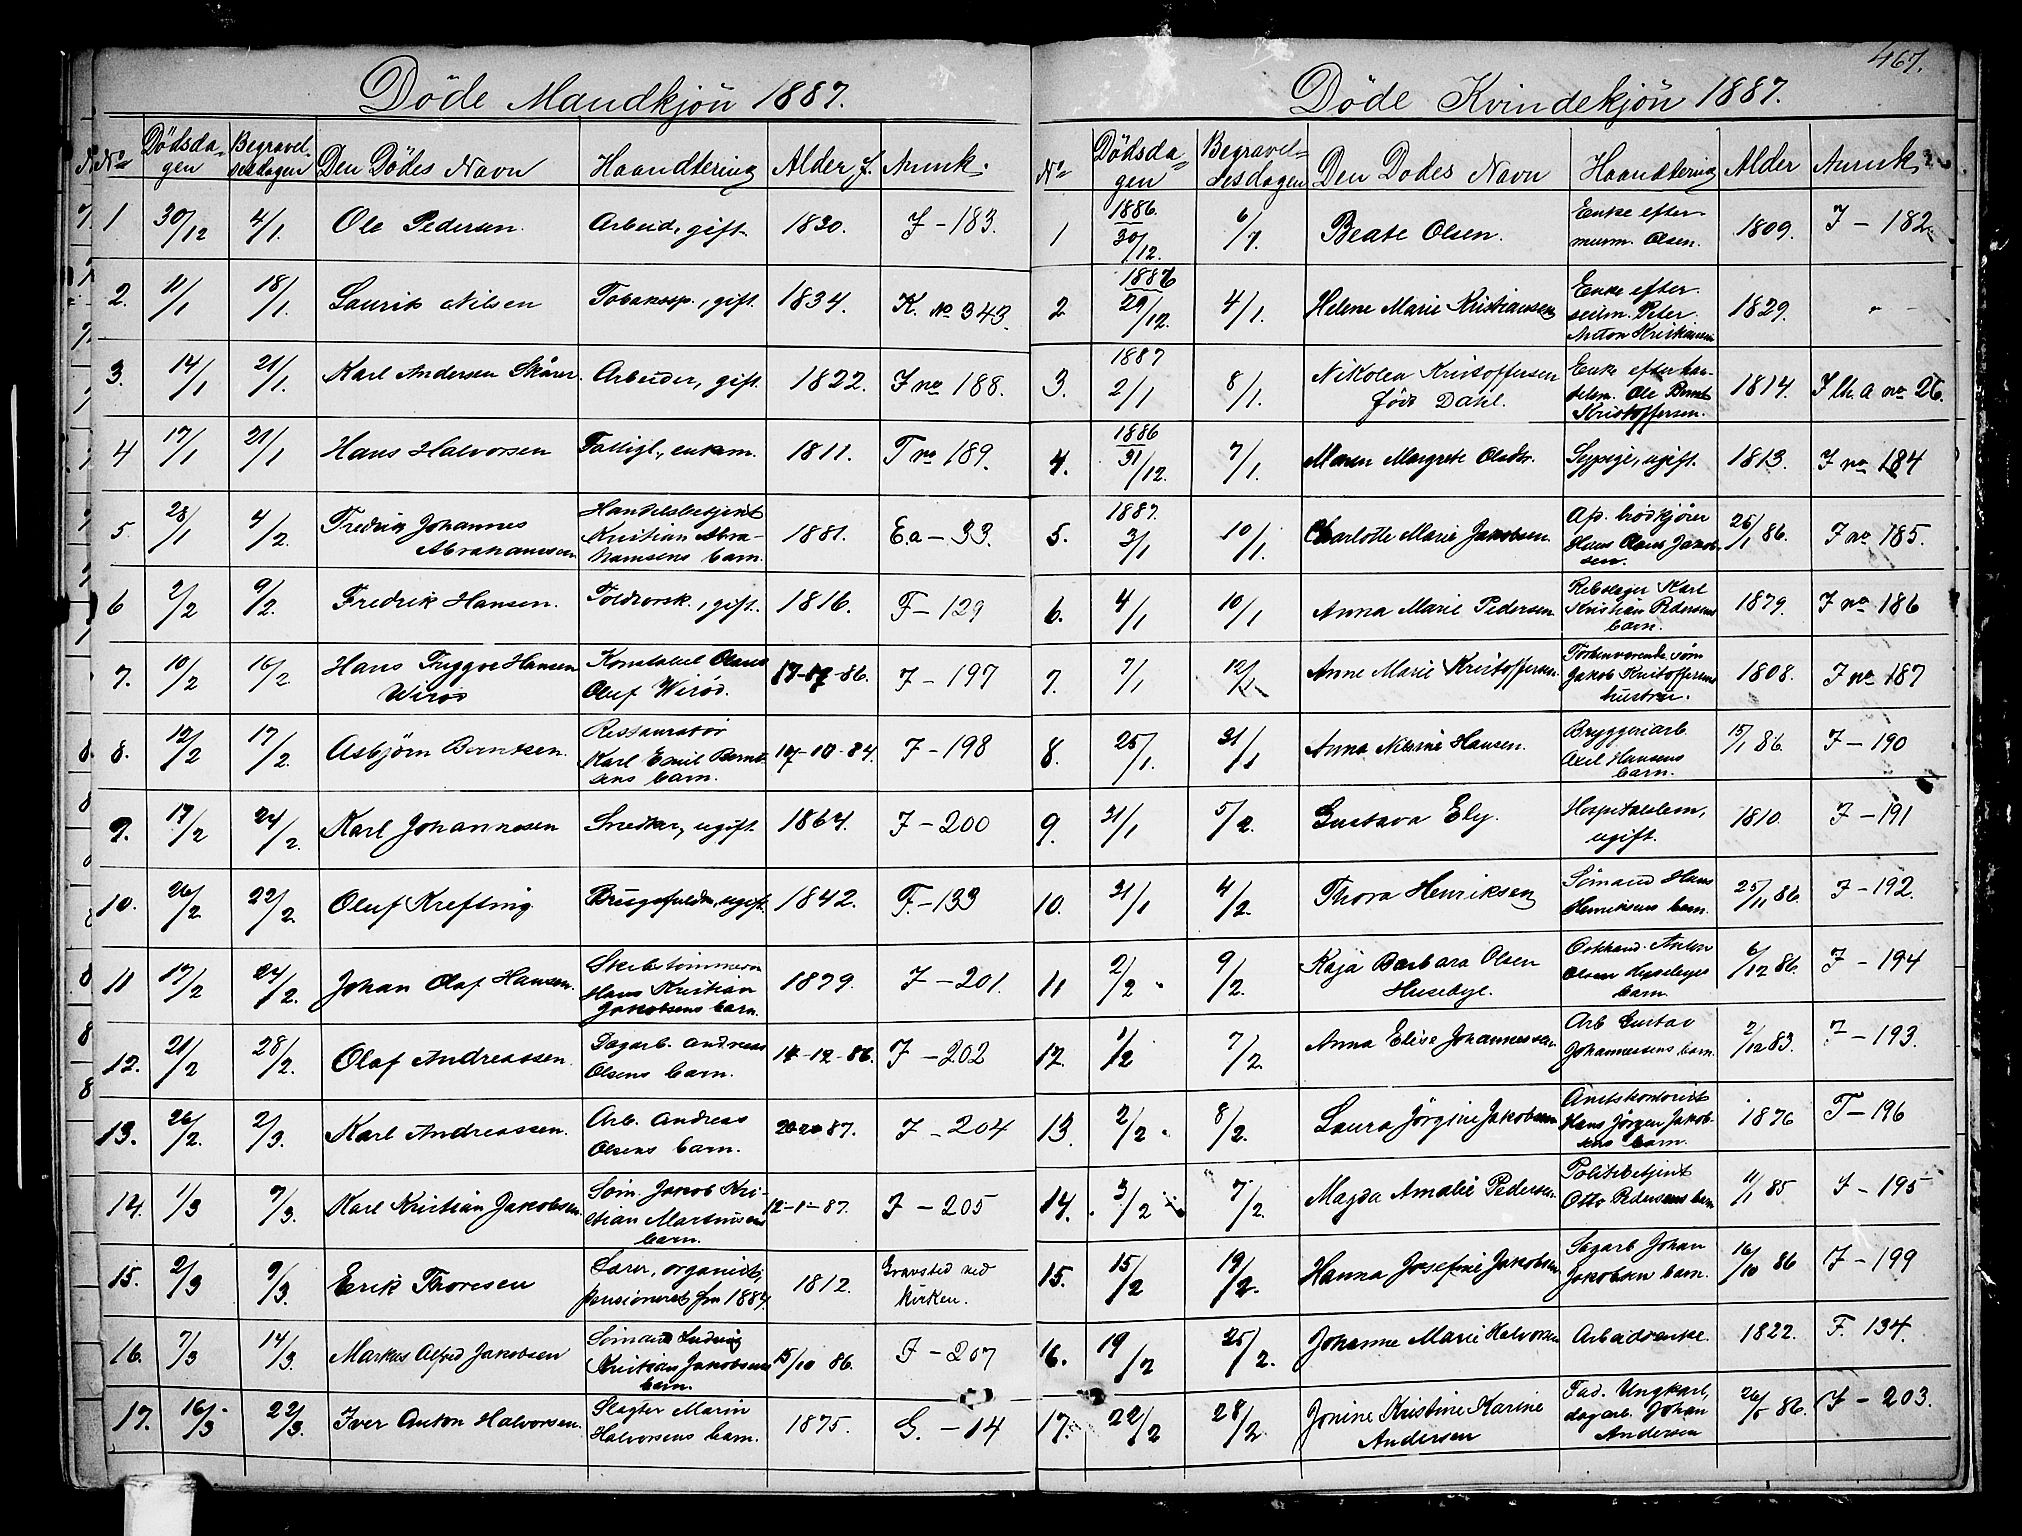 467.
Döde Mandkjön 1887.
No Dödsdagen Begravelsesdagen Den Dödes Navn Haandtering Alder f. Anmk.
1 30/12 4/1. Ole Pedersen. Arbeid, gift. 1830. J - 183.
2. 11/1 18/1. Laurits Nilsen Tobakssp., gift. 1834. K. No 343.
3. 14/1 21/1. Karl Andersen Skårer. Arbeider, gift. 1822. J no 188.
4 17/1 21/1 Hans Halvorsen Fattigl., enkem. 1811. J no 189.
5. 28/1 4/2. Fredrik Johannes Abrahamsen Handelsbetjent
Kristian Abra-
hamsens barn. 1881. E.a - 33.
6 2/2 9/2. Fredrik Hansen. Toldrorsk., gift. 1816. F - 129
7. 10/2 16/2 Hans Tryggve Hansen
Wirød Konstabel Olaus
Oluf Wirød. 17-07-86. J - 197
8. 12/2 17/2. Asbjörn Berntsen. Restauratør
Karl Emil Bernt-
sens barn. 17-10-84. J - 198
9. 17/2 24/2. Karl Johannesen Snedker, ugift. 1864. J - 200
10. 26/2 22/2. Oluf Krefting Brugsfuldm., ugift. 1842. F. - 133
11 17/2 24/2. Johan Olaf Hansen. Skibstømmerm
Hans Kristian
Jakobsens barn. 1879. J - 201.
12. 21/2 28/2. Olaf Andreassen. Dagarb. Andreas
Olsens barn. 14-12-86. J - 202
13. 26/2. 2/3. Karl Andreassen. Arb. Andreas
Olsens barn. 87. J - 204
14. 1/3 7/3. Karl Kristian Jakobsen Søm. Jakob Kri-
stian Martinsens
barn. 12-1-87. J - 205
15. 2/3 9/3. Erik Thoresen Lærer, organist,
pensioneret fra 1884 1812. Gravsted ved
kirken.
16. 7/3 14/3. Markus Alfred Jakobsen Sømand Ludvig
Kristian Jakobsens
barn. 15/10 86. J - 207
17. 16/3 22/3. Iver Anton Halvorsen. Slagter Marin
Halvorsens barn. 1875. G. - 14
Döde Kvindekjön 1887.
No Dödsdagen Begravelsesdagen Den Dödes Navn Haandtering Alder Anmk.
1 1886. 30/12. 6/1. Beate Olsen. Enke efter
murm. Olsen. 1809. J - 182
2 1886 29/12. 4/1. Helene Marie Kristiansen Enke efter
seilm. Peter
Anton Kristiansen 1829. " -
3. 1887 2/1 8/1. Nikolea Kristoffersen
født Dahl. Enke efter han-
delsm. Ole Bernt
Kristoffersen. 1814. J lit. a no 26.
4. 1886 31/12. 7/1. Maren Margrete Olsdr. Sypige, ugift. 1813. J no 184
5. 1887. 3/1 10/1. Charlotte Marie Jakobsen. Ap. brödkjörer
Hans Olaus Jakob-
sen. 26/1 86. J no 185.
6. 4/1 10/1 Anna Marie Pedersen Rebslager Karl
Kristian Pedersens
barn. 1879. J no 186
7. 7/1 12/1 Anne Marie Kristoffersen. Forhenværende søm
Jakob Kristoffersens
hustru. 1808. J no 187
8. 25/1. 31/1 Anna Nilsine Hansen. Bryggeriarb.
Axel Hansens
barn. 15/1 86. J - 190
9. 31/1 5/2. Gustava Ely. Hospitalslem,
ugift. 1810. J - 191
10. 31/1 4/2. Thora Henriksen Sömand Hans
Henriksens barn. 25/11 86. J - 192.
11 2/2 9/2. Kaja Barbara Olsen
Husebye. Anton
Olsen
barn. 6/12 86. J - 194
12. 1/2 7/2. Anna Elise Johannessen Arb Gustav
Johannessens barn. 2/12 83. J - 193.
13. 2/2 8/2. Laura Jörgine Jakobsen Amtskontorist
Hans Jörgen Jakob-
sens barn. 1876 F - 196
14. 3/2 7/2. Magda Amalie Pedersen Politibetjent
Otto Pedersens barn 11/1 85 J - 195
15. 15/2 19/2. Hanna Josefine Jakobsen Dagarb Johan
Jakobsen barn. 16/10 86 J - 199
16. 19/2 25/2. Johanne Marie Halvorsen Arbeidrenke. 1822. F. 134.
17. 22/2 28/2. Jonine Kristine Karine
Andersen Fad. Ungkarl,
dagarb. Johan
Andersen 26/5 86. J - 203.